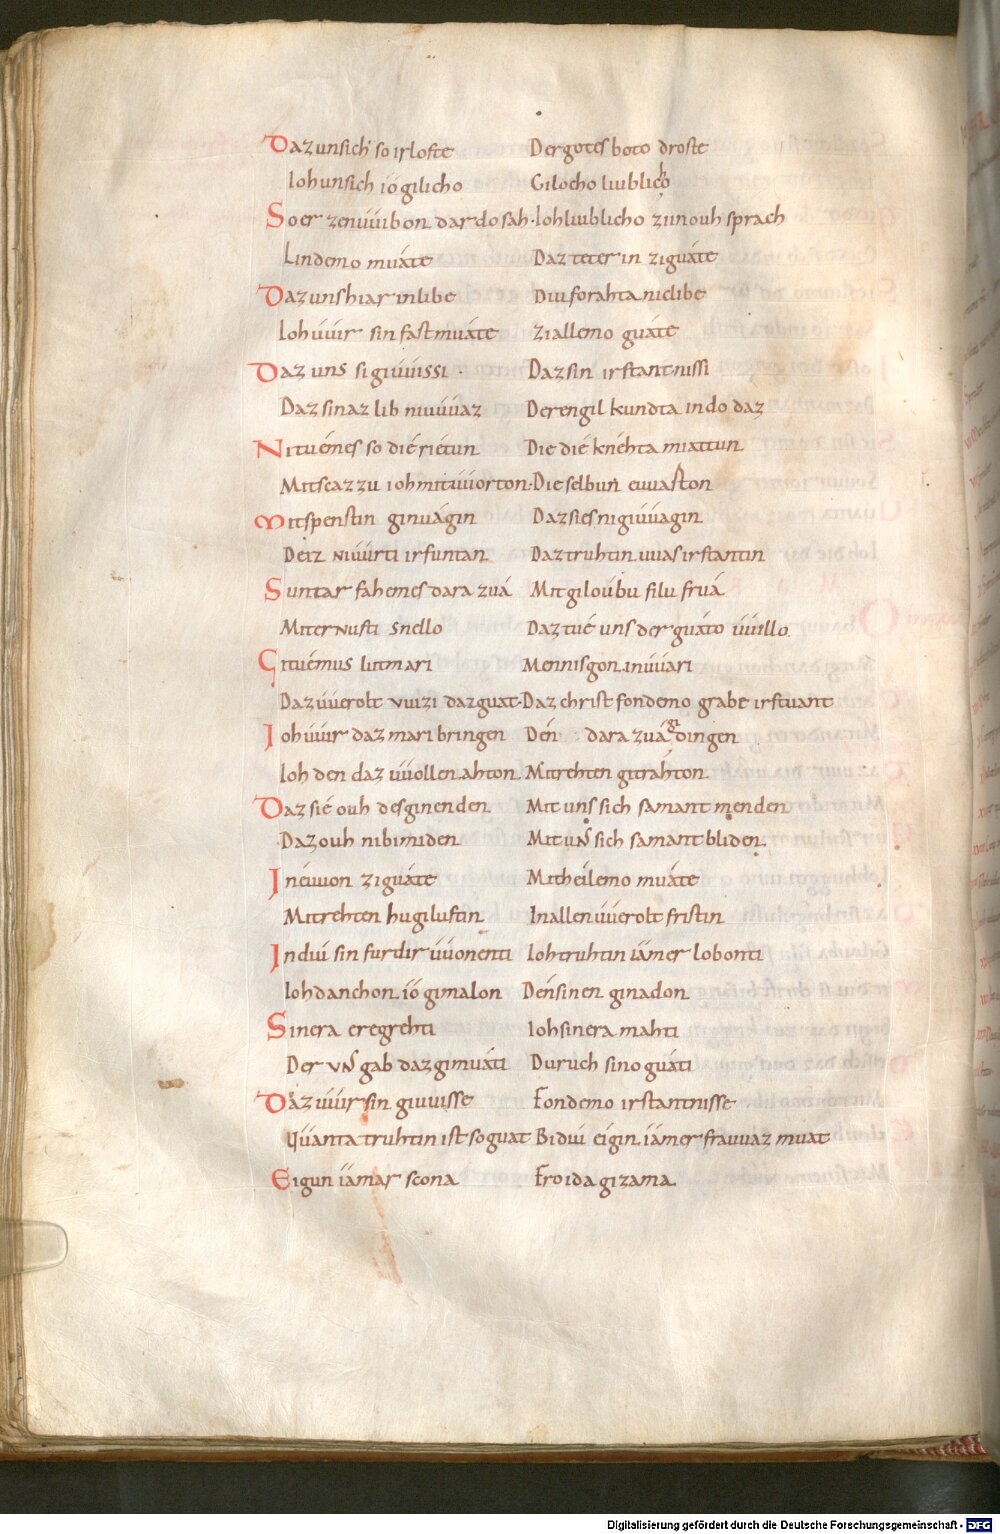 Dazunsich so irlofte Dergotes boto droste
Ioh unsich io gilicho Gilocho liublicho
So er zenuuibon dar do sah· Ioh liublicho ziin ouh sprach
Lindemo muáte Daz teter in ziguáte
Daz uns hiar inlibe Diu forahta niclibe
Ioh uuir sin fastmuáte Zi allemo guáte
Daz uns si giuuissi · Daz sin irstantnissi
Daz sinaz lib niuuaz Der engil kundta in do daz
Nituémes so dié riétun Die dié knéhta miattun
Mit scazzu ioh mit uuorton· Die selbun euuarton
Mit spenstin ginuágin Daz sies nigiuuagin
Deiz niuurti irfuntan Daz truhtin uuas irstantin
Suntar fahemes dara zuá Mit giloúbu filu fruá
Mit ernusti snello Daz tué uns der guáto uuillo.
Gituémus lutmari Mennisgon inuuari
Daz uuerolt uuizi daz guat· Daz christ fondemo grabe irstuant
Ioh uuir daz mari bringen Dén dara zuá gidingen
Ioh den daz uuollen ahton. Mit rehten gitrahton
Daz sié ouh des ginenden Mit uns sich samant menden
Daz ouh nibimiden Mit uns sich samant bliden.
In éuuon ziguáte Mit heilemo muáte
Mit rehten hugilustin In allen uuerolt fristin
In diu sin furdir uuonenti Ioh truhtin iámer lobonti
Ioh danchon io gimalon Dén sinen ginadon
Sinera eregrehti Ioh sinera mahti
Der uns gab daz gimuáti Duruch sino guáti
Daz uuir sin giuuisse Fondemo irstantnisse
Quanta truhtin ist so guat Bidiu eigin iámer frauuaz muat
Eigun iámar scona Froida gizama.
Digitalisierung gefördert durch die Deutsche Forschungsgemeinschaft - DFG